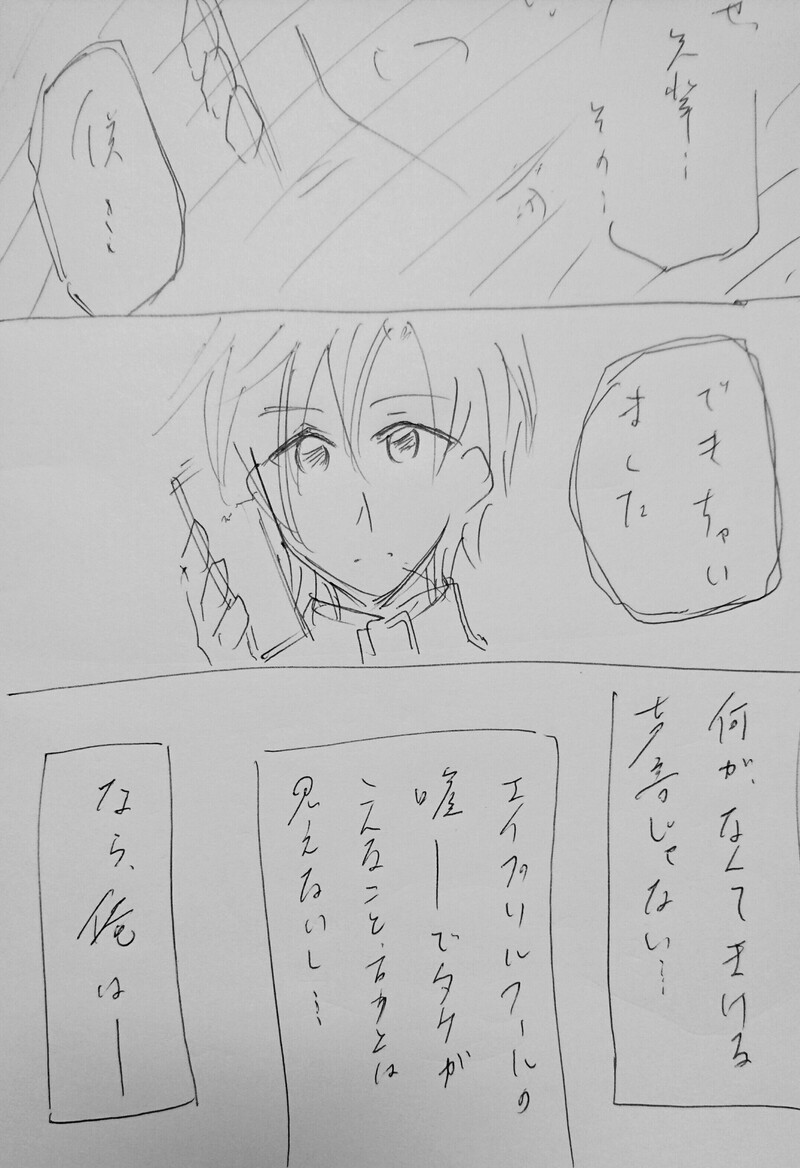 せ、
先輩…
その…
僕…
できちゃい
ました
何が、なんてきける
声音じゃない…
エイプリルフールの
嘘―でタケが
こんなこと、言うとは
思えないし…
なら、俺は―